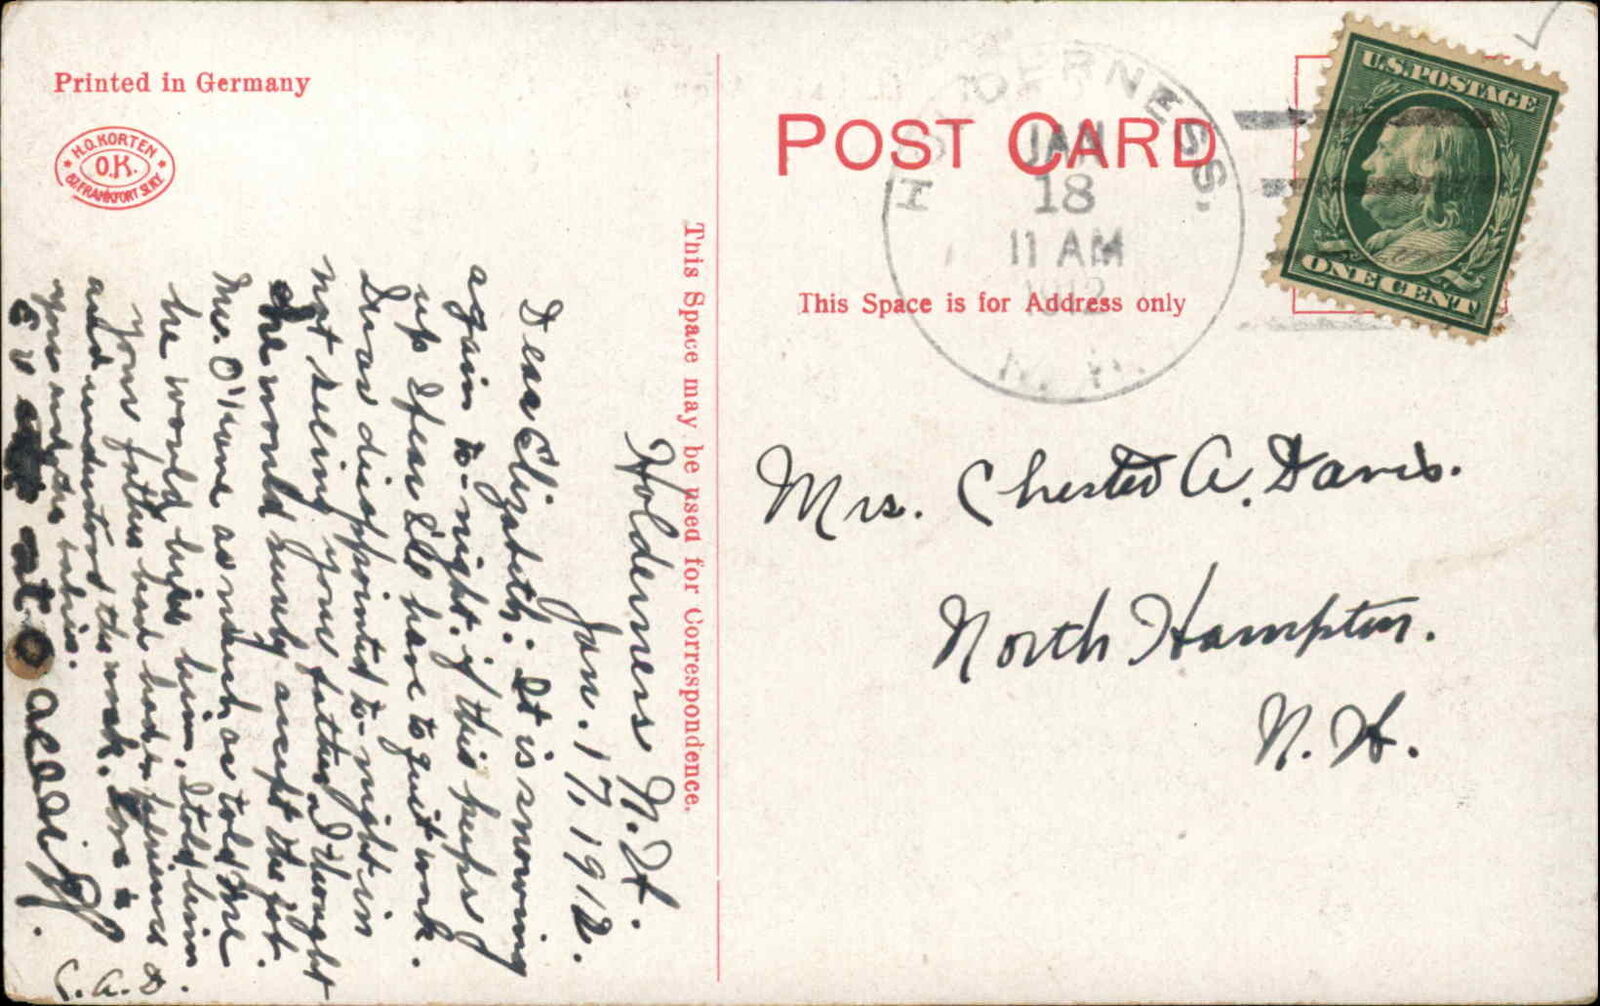 Printed in Germany
H.O. KORTEN
O.K.
62 FRANKFORT St. N.Y.
This Space may be used for Correspondence.
Holderness N.H.
Jan. 17, 1912.
Dear Elizabeth: It is snowing
again to-night. if this keeps
up I fear I'll have to quit work.
I was disappointed to-night in
not seeing your father. I thought
he would surely accept the job.
Mr. O'Kane as much as told me
he would hire him. I told him
your father had had experience
and understood the work. Love to
you and the babies.
C.A.D.
POST CARD
This Space is for Address only
HOLDERNESS,
JAN
18
11 AM
1912
N. H.
U.S. POSTAGE
ONE CENT
Mrs. Chester A. Davis.
North Hampton.
N. H.